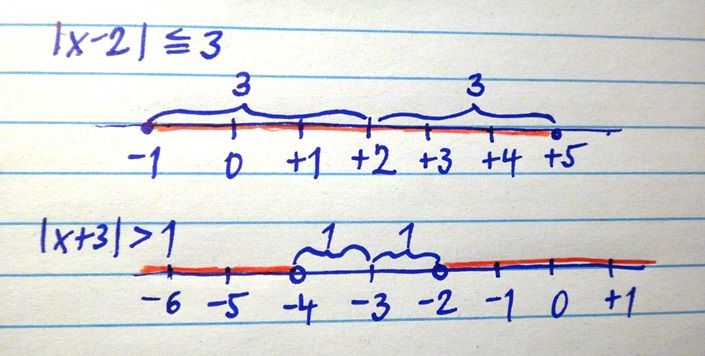 |x-2| ≦ 3
3 3
-1 0 +1 +2 +3 +4 +5
|x+3| > 1
1 1
-6 -5 -4 -3 -2 -1 0 +1